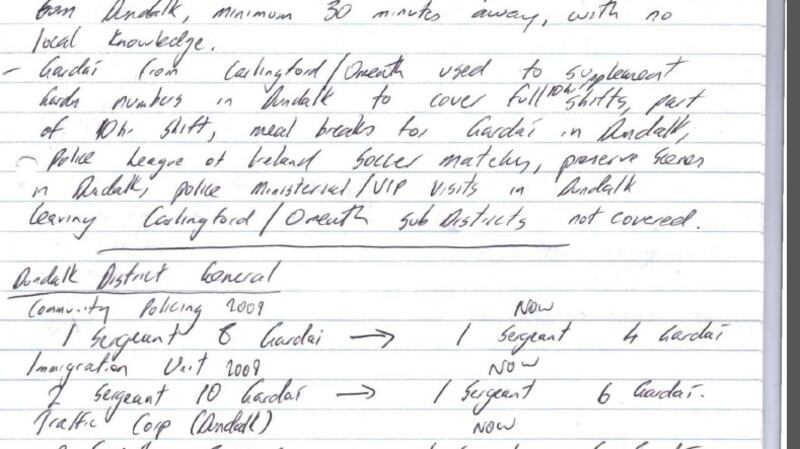 from Dundalk, minimum 30 minutes away, with no
local knowledge.
- Gardai from Carlingford/Omeath used to supplement
Garda numbers in Dundalk to cover full 10hr shifts, part
of 10hr shift, meal breaks for Gardai in Dundalk,
- Police League of Ireland Soccer matches, preserve scenes
in Dundalk, police Ministerial/VIP visits in Dundalk
leaving Carlingford/Omeath sub Districts not covered.
Dundalk District General
Community Policing 2009 NOW
1 Sergeant 8 Gardai → 1 Sergeant 4 Gardai
Immigration Unit 2009 NOW
2 Sergeant 10 Gardai → 1 Sergeant 6 Gardai.
Traffic Corp (Dundalk) NOW